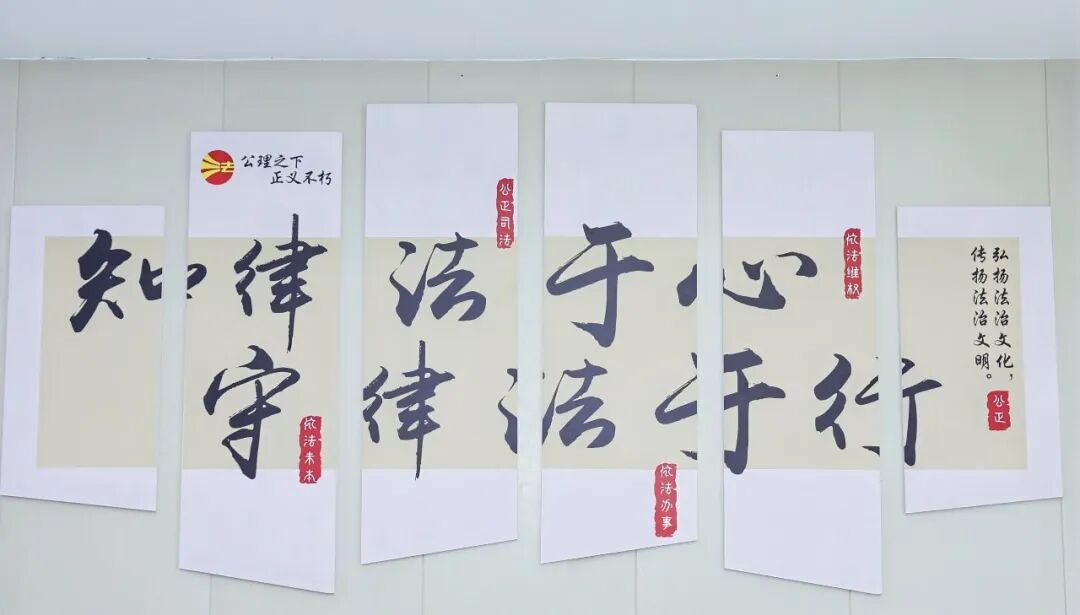 公理之下
正义不朽
知律法于心
守律法于行
公正司法
依法维权
依法未本
依法办事
弘扬法治文化，
传扬法治文明。
公正
法